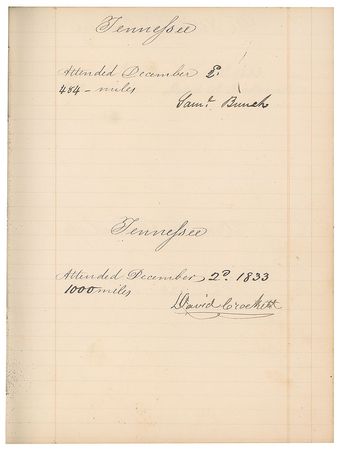 Tennessee
Attended December 2.
484 - miles
Saml. Bunch
Tennessee
Attended December, 2d. 1833
1000 miles
David Crockett